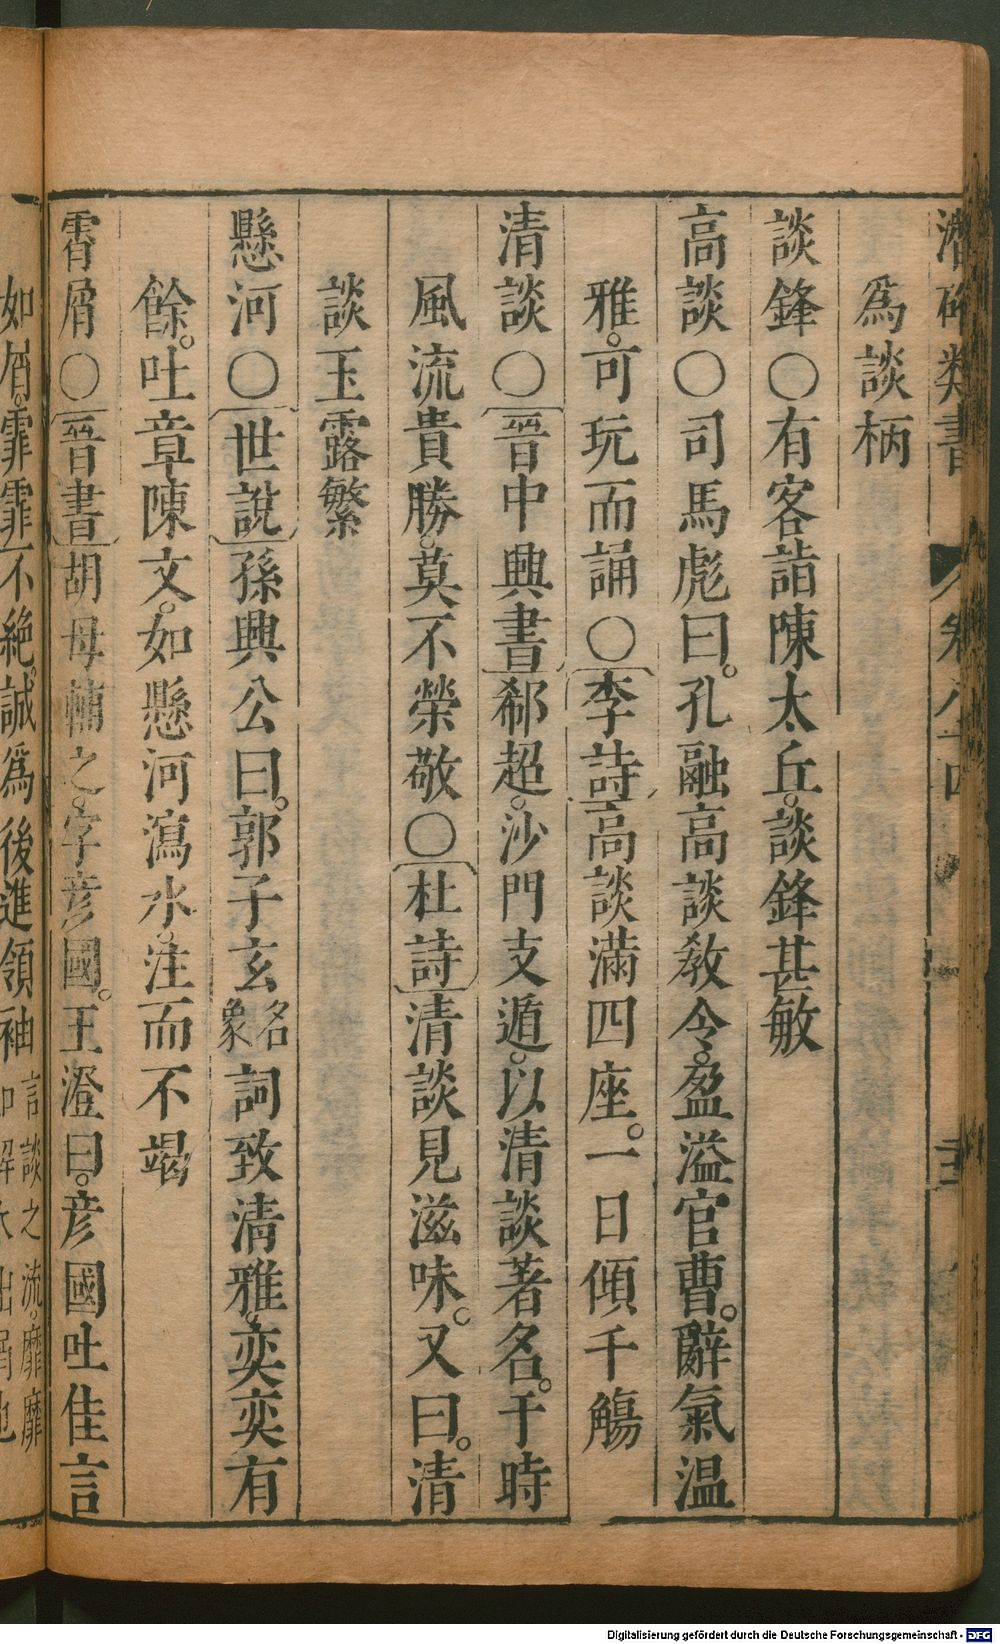 潛確類書 卷八十四
爲談柄
談鋒○有客詣陳太丘。談鋒甚敏
高談○司馬彪曰。孔融高談教令。盈溢官曹。辭氣溫
雅。可玩而誦○李詩高談滿四座。一日傾千觴
清談○晉中興書郗超。沙門支遁。以清談著名。于時
風流貴勝。莫不榮敬○杜詩清談見滋味。又曰。清
談玉露繁
懸河○世說孫興公曰。郭子玄名象詞致清雅。奕奕有
餘。吐章陳文。如懸河瀉水。注而不竭
霏屑○晉書胡母輔之。字彥國。王澄曰。彥國吐佳言
如屑。霏霏不絕。誠爲後進領袖言談之流。靡靡如解木出屑也
Digitalisierung gefördert durch die Deutsche Forschungsgemeinschaft - DFG